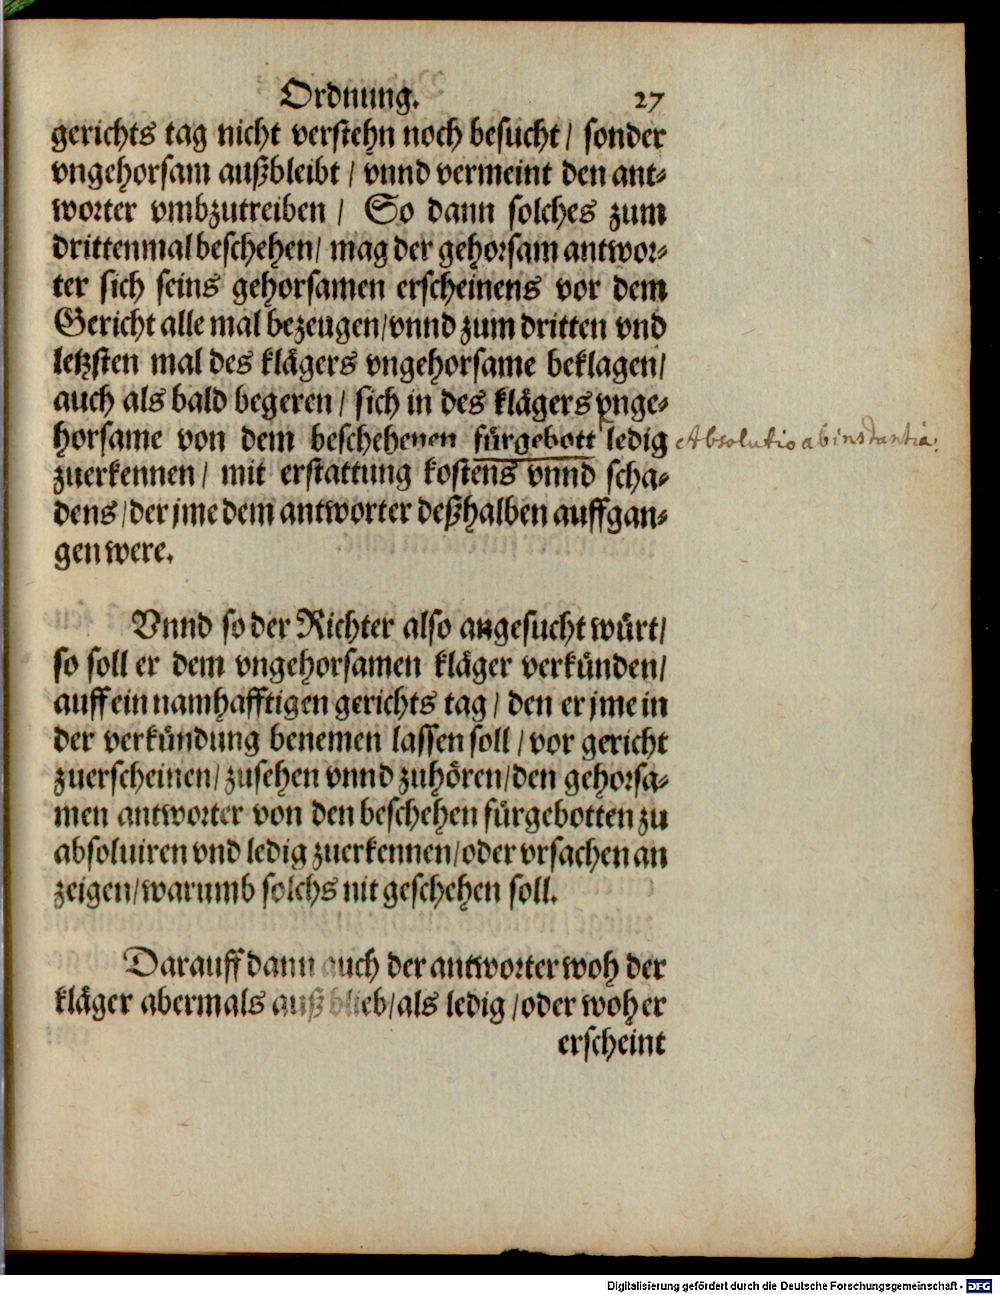 Ordnung. 27
gerichts tag nicht verstehn noch besucht / sonder
vngehorsam außbleibt / vnnd vermeint den ant⸗
worter vmbzutreiben / So dann solches zum
drittenmal beschehen / mag der gehorsam antwor⸗
ter sich seins gehorsamen erscheinens vor dem
Gericht alle mal bezeugen / vnnd zum dritten vnd
letzsten mal des klägers vngehorsame beklagen /
auch als bald begeren / sich in des klägers vnge⸗
horsame von dem beschehenen fürgebott ledig
Absolutio ab instantia.
zuerkennen / mit erstattung kostens vnnd scha⸗
dens / der jme dem antworter deßhalben auffgan⸗
gen were.
Vnnd so der Richter also angesucht würt /
so soll er dem vngehorsamen kläger verkünden /
auff ein namhafftigen gerichts tag / den er jme in
der verkündung benemen lassen soll / vor gericht
zuerscheinen / zusehen vnnd zuhören / den gehorsa⸗
men antworter von den beschehen fürgebotten zu
absoluiren vnd ledig zuerkennen / oder vrsachen an
zeigen / warumb solchs nit geschehen soll.
Darauff dann auch der antworter woh der
kläger abermals außblieb / als ledig / oder woh er
erscheint
Digitalisierung gefördert durch die Deutsche Forschungsgemeinschaft - DFG